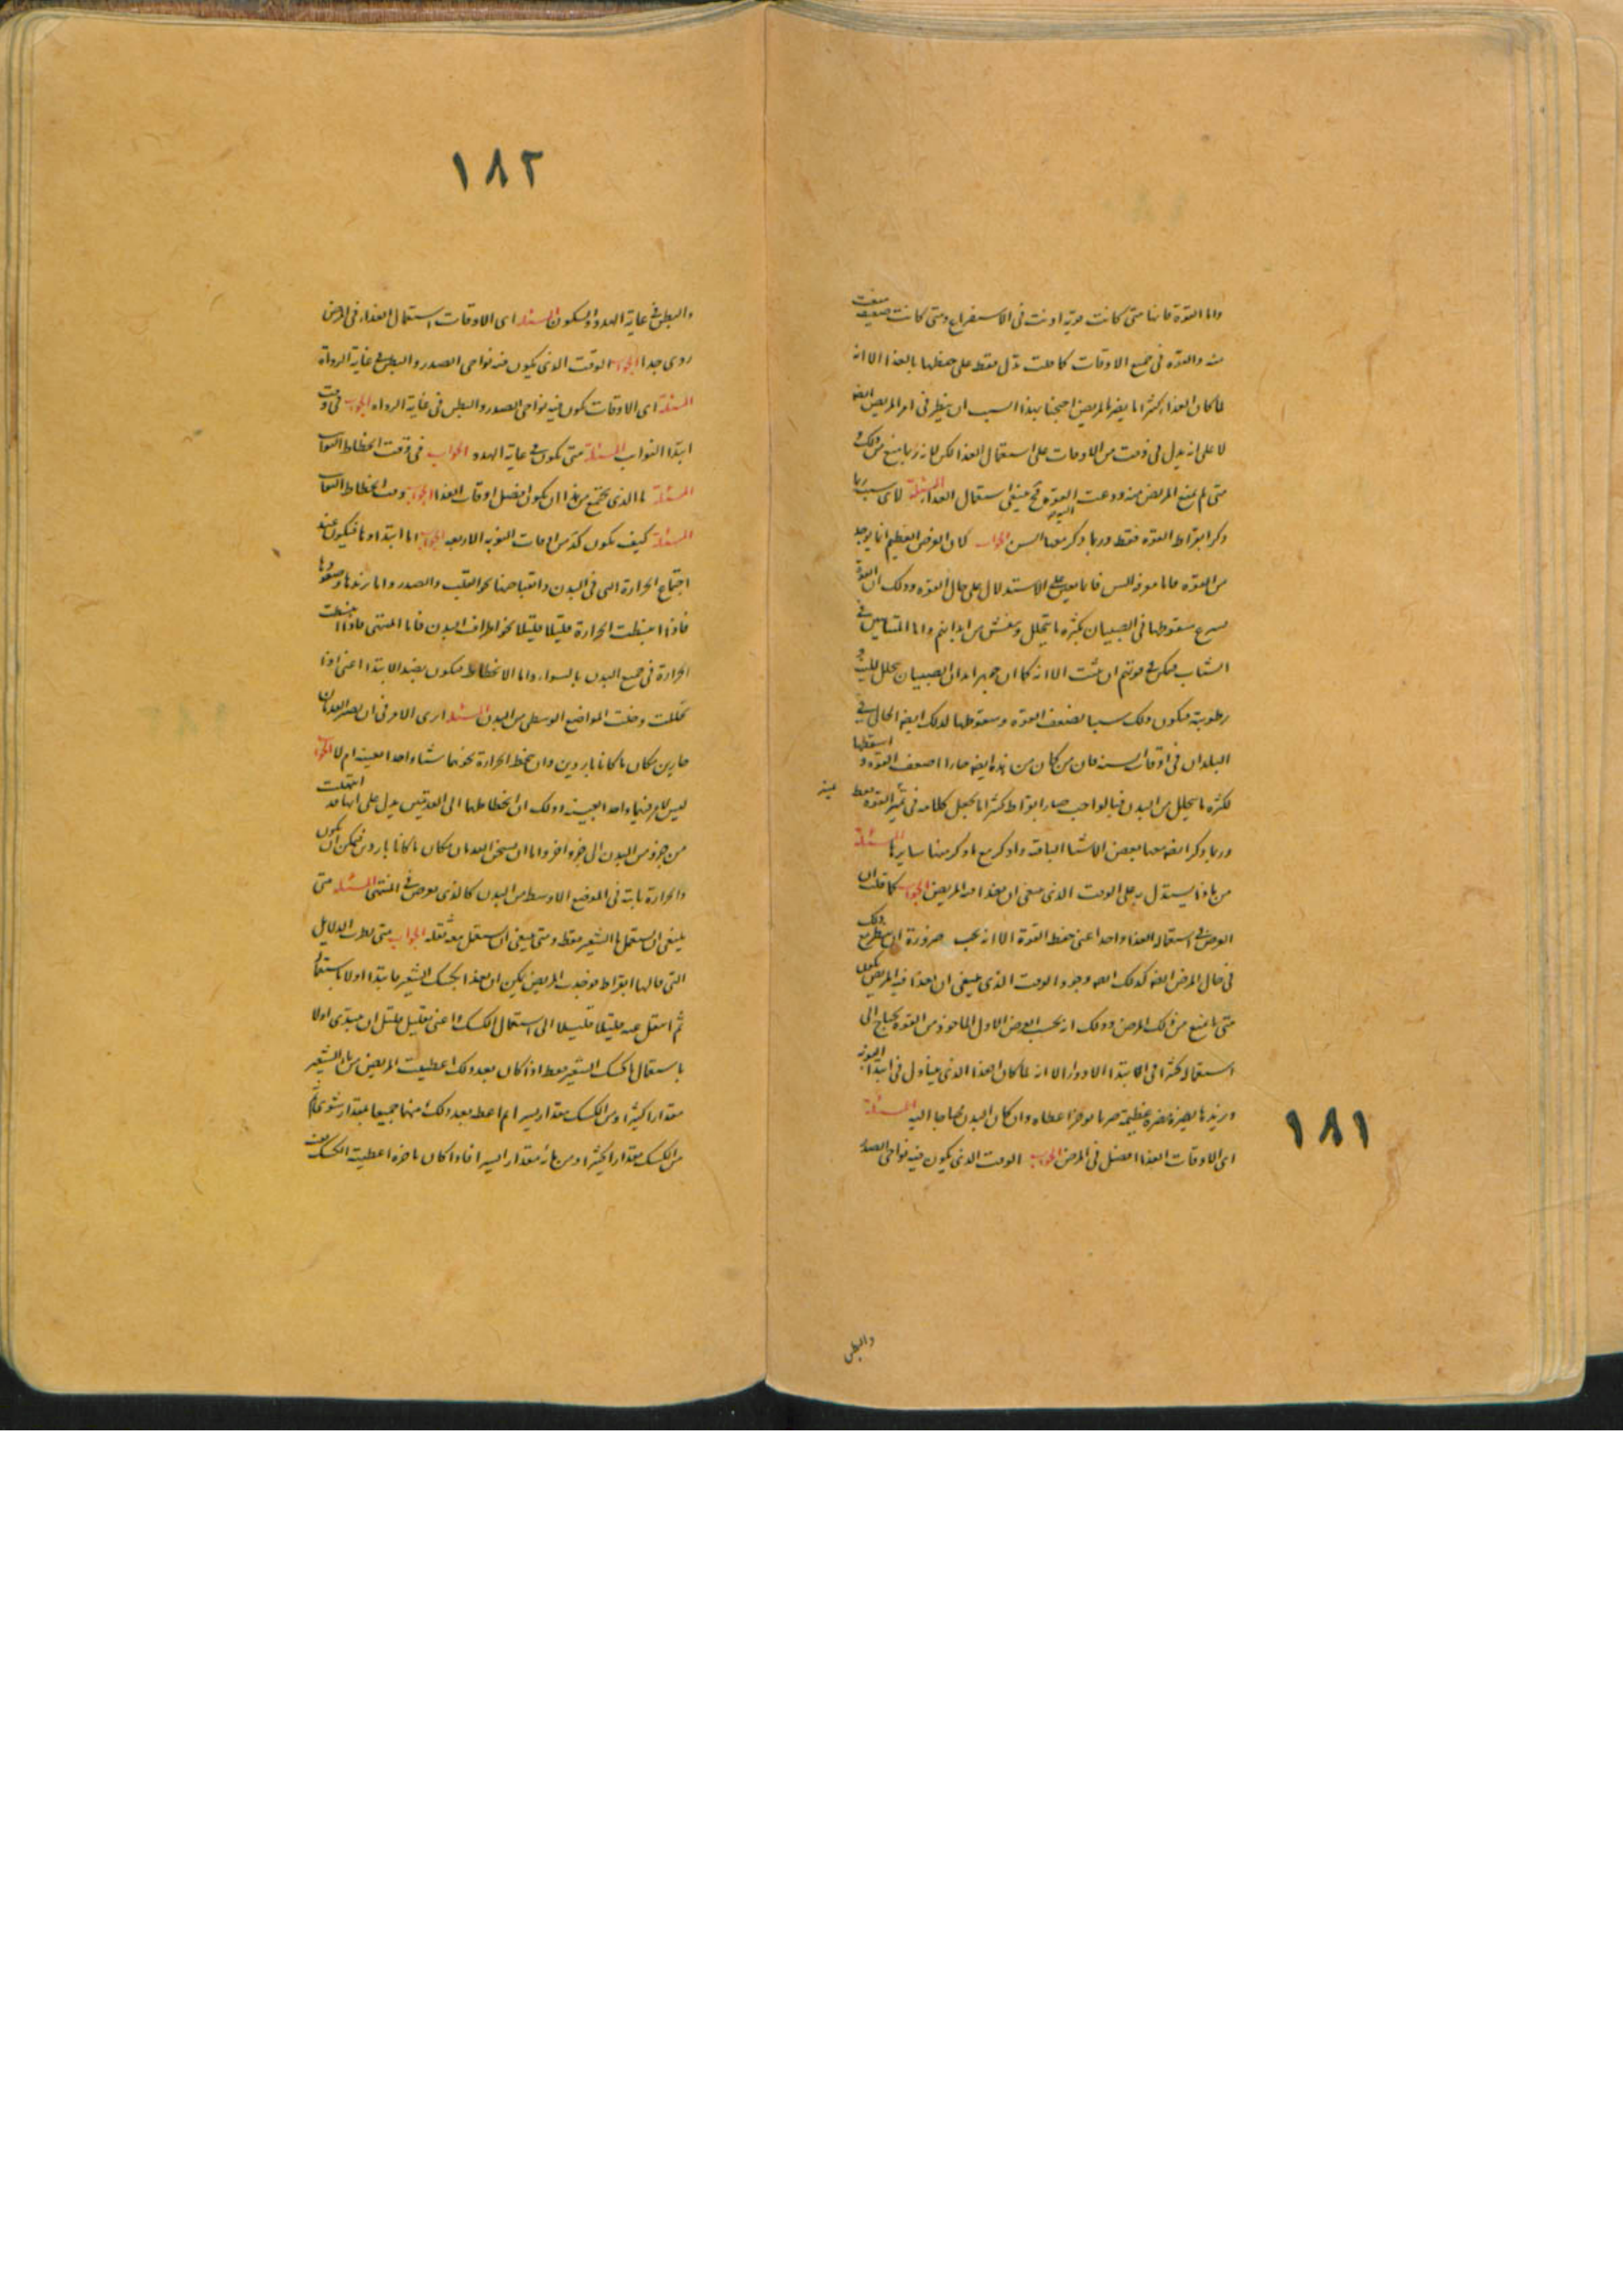 واما القوة فانها متى كانت قوية اذنت فى الاستفراغ ومتى كانت ضعيفة منعت
منه والقوة فى جميع الاوقات كما قلت تدل فقط على حفظها بالغذا الا انه
لما كان الغذا كثيرا ما يضر المريض احتجنا بهذا السبب ان ينظر فى امر المريض ايضه
لا على انه يدل فى وقت من الاوقات على استعمال الغذا لكن لانه ربما منع من ذلك
متى لم يمنع المريض منه ودعت القوة اليه فح ينبغى استعمال الغذا المسئلة لاى سبب ربما
ذكر ابقراط القوة فقط وربما ذكر معها السن الجواب كان الغرض العظيم انما يوجد
من القوة فاما معرفة السن فانما تعين على الاستدلال على حال القوة وذلك ان القوة
يسرع سقوطها فى الصبيان لكثرة ما يتحلل وينفش من ابدانهم واما المتناهين فى
الشباب فيمكن فى قوتهم ان تثبت الا انه كما ان جوهر ابدان الصبيان يتحلل للينه و
رطوبته فيكون ذلك سببا لضعف القوة وسقوطها كذلك ايضه الحال فى
البلدان فى اوقات السنه فان من كان من هذه ايضه حارا اضعف القوة و اسقطها
لكثرة ما يتحلل من البدن فبالواجب صار ابقراط كثيرا ما يجعل كلامه فى تميز القوة فقط
وربما ذكر ايضه معها بعض الاشيا الباقيه واذكر مع ما ذكر منها سايرها المسئلة
من ماذا يستدل به على الوقت الذى ينبغى ان يغذا فيه المريض الجواب كما قلت ان
الغرض فى استعمال الغذا واحد اعنى حفظ القوة الا انه يجب ضرورة ان ينظر مع ذلك
فى حال المرض ايضه كذلك ايضه وجود الوقت الذى ينبغى ان يغذا فيه المريض يكون
متى ما منع من ذلك المرض وذلك انه بحسب الغرض الاول الماخوذ من القوة يحتاج الى
استعماله كثيرا فى ابتدا الادوار الا انه لما كان الغذا الذى يتناول فى ابتدا النوبة
وتزيدها يضر مضرة عظيمة صرنا نوخر اعطاه وان كان البدن محتاجا اليه المسئلة
اى الاوقات الغذا افضل فى المرض الجواب الوقت الذى يكون فيه نواحى الصدر
والبطن
١٨١
١٨٢
والبطن فى غاية الهدو والسكون المسئلة اى الاوقات استعمال الغذاء فى المرض
ردى جدا الجواب الوقت الذى يكون فيه نواحى الصدر والبطن فى غاية الرداة
المسئلة اى الاوقات تكون فيه نواحى الصدر والبطن فى غاية الرداه الجواب فى وقت
ابتدا النوايب المسئلة متى تكون فى غاية الهدو الجواب فى وقت انحطاط النوايب
المسئلة ما الذى يجتمع من هذا ان يكون افضل اوقات الغذا الجواب وقت انحطاط النوايب
المسئلة كيف يكون كل من اوقات النوبه الاربعه الجواب اما ابتداوها فيكون عند
اجتماع الحرارة التى فى البدن وانقباضها نحو القلب والصدر واما تزيدها وصعودها
فاذا انبسطت الحرارة قليلا قليلا نحو اطراف البدن فاما المنتهى فاذا انبسطت
الحرارة فى جميع البدن بالسواء واما الانحطاط فيكون بضد الابتدا اعنى اذا
تحللت وخفت المواضع الوسطى من البدن المسئلة ارى الامر فى ان تصير القدمان
حارين مكان ما كانا باردين وان تنحط الحرارة نحوهما شيئا واحدا بعينه ام لا الجواب
ليس الامر فيهما واحدا بعينه وذلك ان انحطاطها الى القدمين يدل على انها قد انتقلت
من جزء من البدن الى جزء اخر واما ان تسخن القدمان مكان ما كانا باردين فيمكن ان يكون
والحرارة ثابتة فى الموضع الاوسط من البدن كالذى يعرض فى المنتهى المسئلة متى
ينبغى ان يستعمل ما الشعير فقط ومتى ينبغى ان يستعمل معه ثفله الجواب متى نظرت الدلايل
التى قالها ابقراط فوجدت المريض يمكن ان يغذا بكشك الشعير فابتدا اولا باستعماله
ثم انتقل عنه قليلا قليلا الى استعمال الكشك واعنى بقليل قليل ان تبتدى اولا
باستعمال ما كشك الشعير فقط اذا كان بعد ذلك اعطيت المريض من ماء الشعير
مقدارا كثيرا ومن الكشك مقدار يسير ثم اعطه بعد ذلك منهما جميعا بمقدار سوا ثم
من الكشك مقدارا كثيرا ومن مائه مقدار اليسير فاذا كان باخره اعطيت الكشك